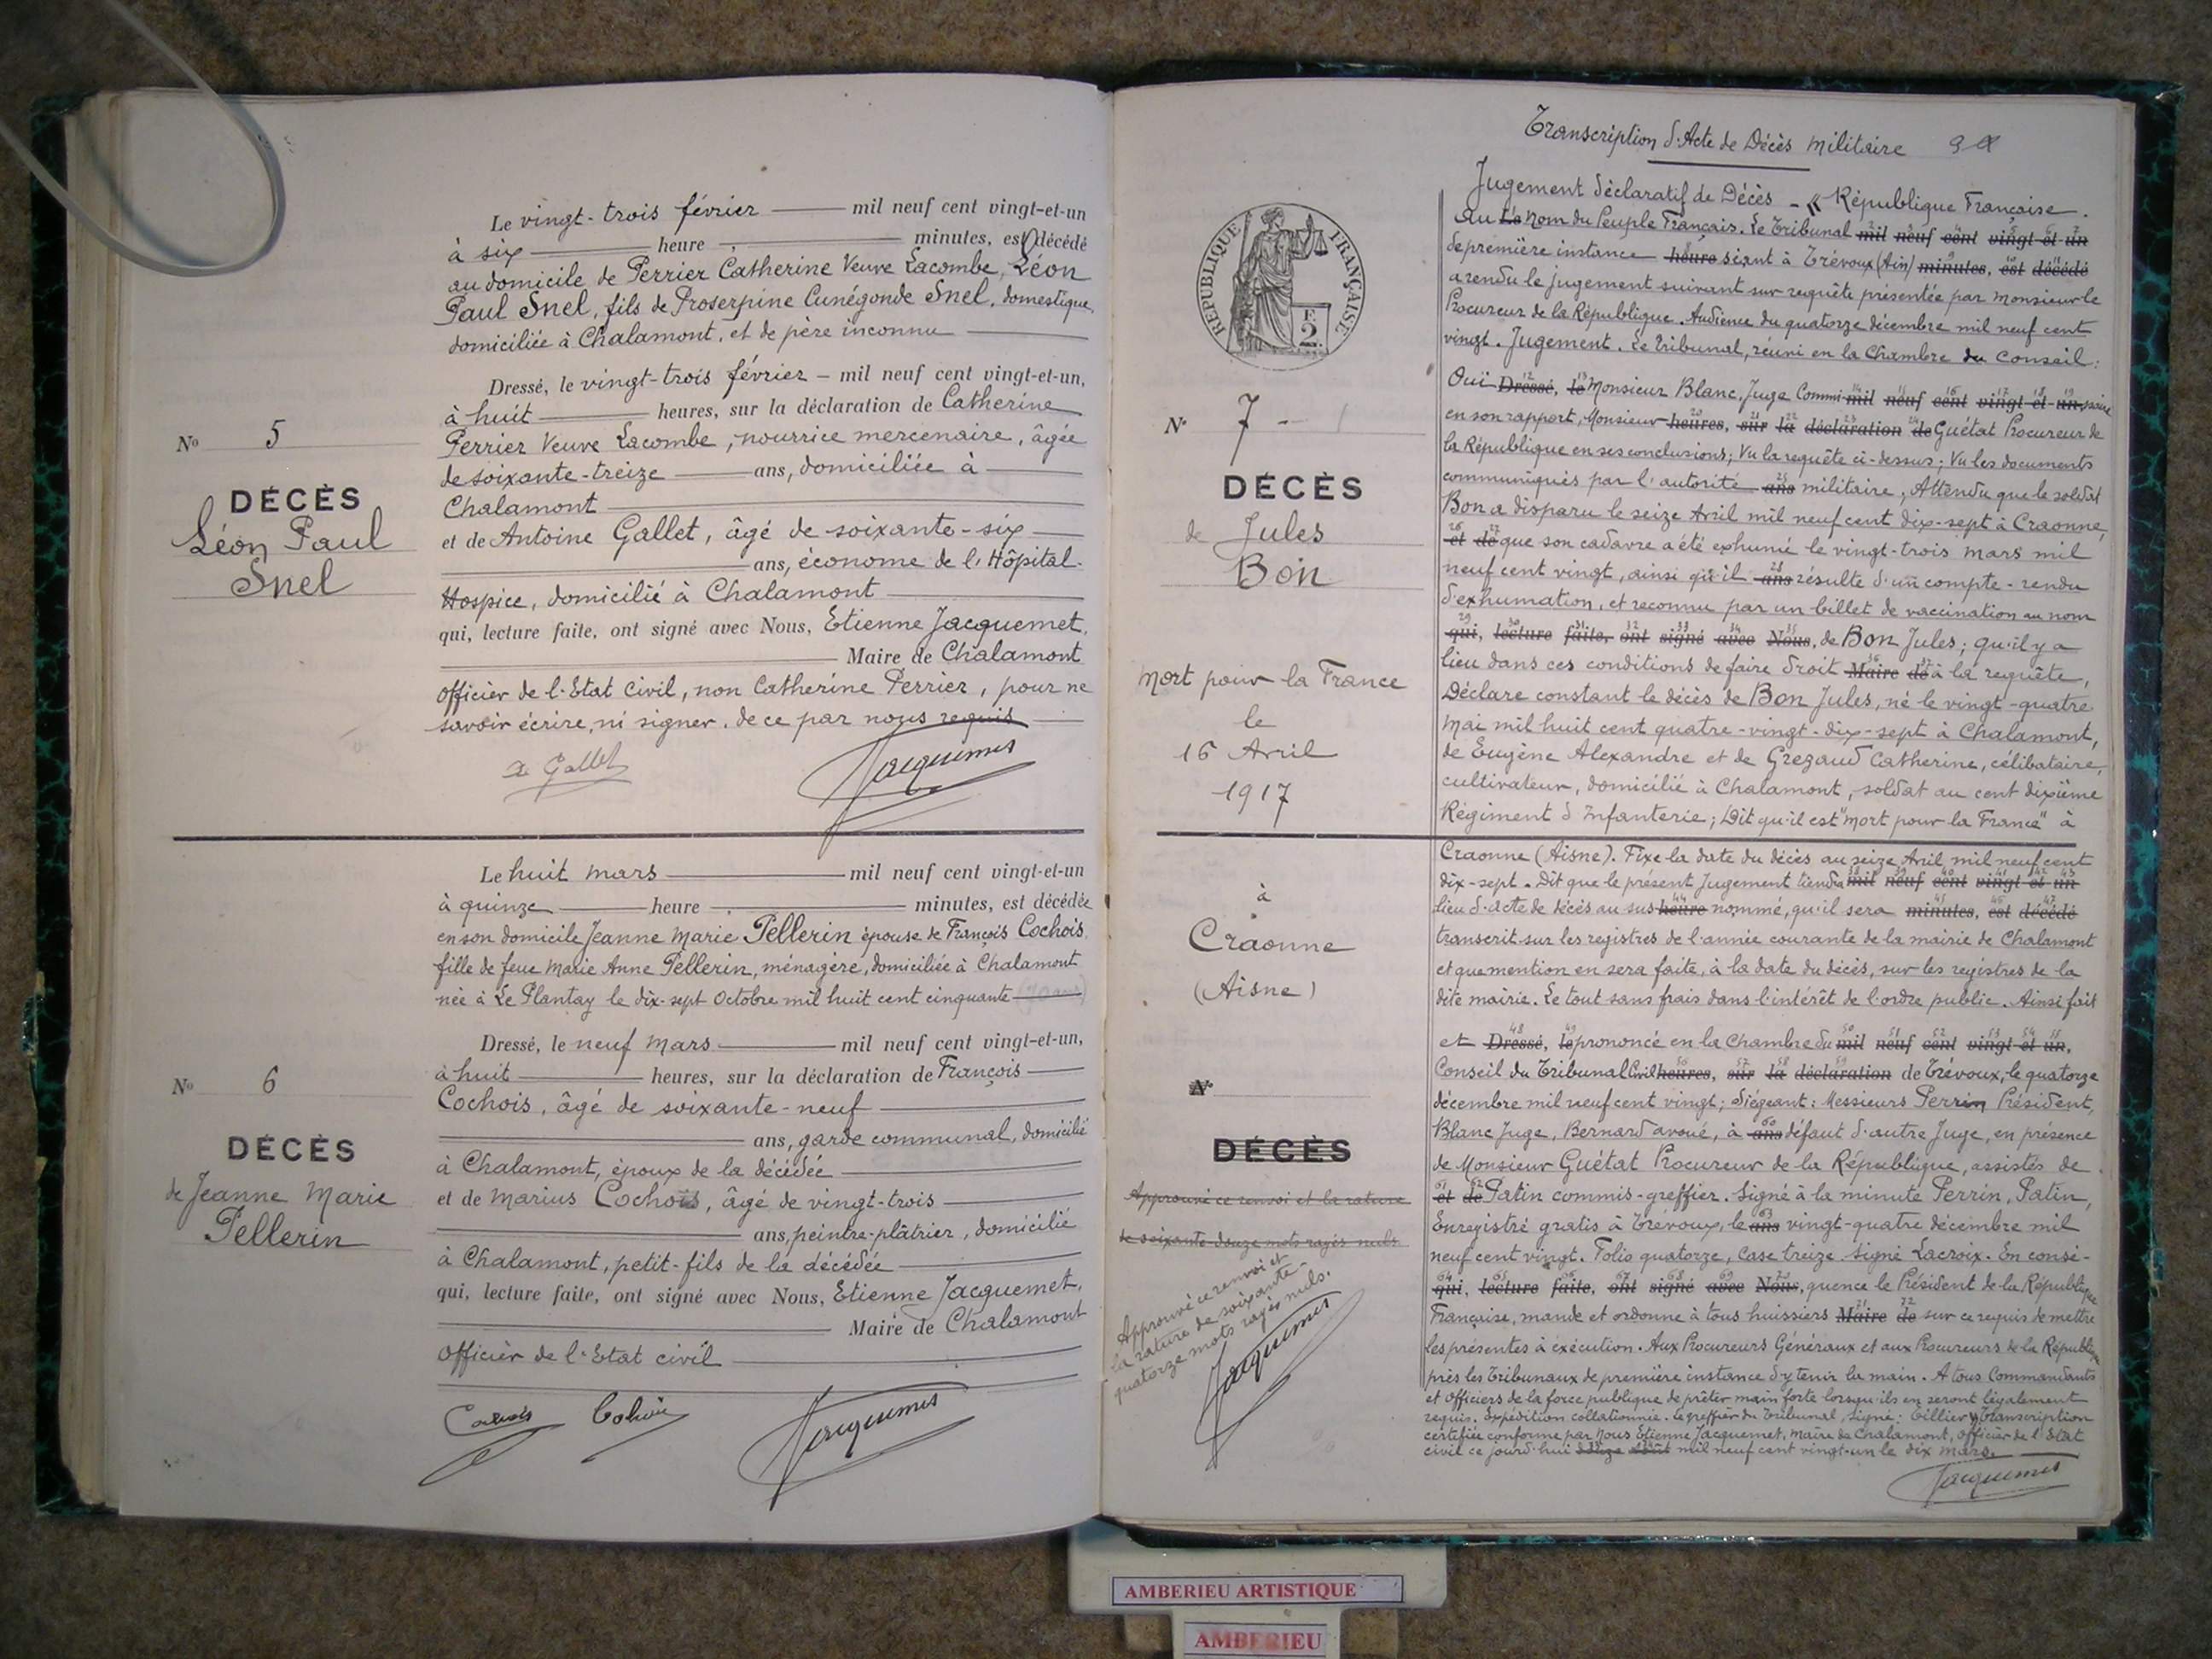 Le vingt-trois février mil neuf cent vingt-et-un
à six heure minutes, est décédé
au domicile de Perrier Catherine Veuve Lacombe, Léon
Paul Snel, fils de Proserpine Cunégonde Snel, domestique,
domiciliée à Chalamont, et de père inconnu
Dressé, le vingt-trois février - mil neuf cent vingt-et-un,
à huit heures, sur la déclaration de Catherine
Perrier Veuve Lacombe, nourrice mercenaire, âgée
de soixante-treize ans, domiciliée à
Chalamont
et de Antoine Gallet, âgé de soixante-six
ans, économe de l'Hôpital-
Hospice, domicilié à Chalamont
qui, lecture faite, ont signé avec Nous, Etienne Jacquemet,
Maire de Chalamont
officier de l'Etat Civil, non Catherine Perrier, pour ne
savoir écrire, ni signer, de ce par nous requis
Gallet Jacquemet
No 5
DÉCÈS
Léon Paul
Snel
Le huit mars mil neuf cent vingt-et-un
à quinze heure minutes, est décédée
en son domicile Jeanne Marie Pellerin épouse de François Cochois
fille de feue Marie Anne Pellerin, ménagère, domiciliée à Chalamont
née à Le Plantay le dix-sept Octobre mil huit cent cinquante
Dressé, le neuf mars mil neuf cent vingt-et-un,
à huit heures, sur la déclaration de François
Cochois, âgé de soixante-neuf
ans, garde communal, domicilié
à Chalamont, époux de la décédée
et de Marius Cochois, âgé de vingt-trois
ans, peintre-plâtrier, domicilié
à Chalamont, petit-fils de la décédée
qui, lecture faite, ont signé avec Nous, Etienne Jacquemet,
Maire de Chalamont
officier de l'Etat civil
Cochois Cochois Jacquemet
No 6
DÉCÈS
de Jeanne Marie
Pellerin
Transcription d'Acte de Décès militaire
RÉPUBLIQUE FRANÇAISE
E
2
No 7
DÉCÈS
de Jules
Bon
Mort pour la France
le
16 Avril
1917
à
Craonne
(Aisne)
No
DÉCÈS
Approuvé ce renvoi et la rature
de soixante-douze mots rayés nuls
Approuvé ce renvoi et
la rature de soixante-
quatorze mots rayés nuls.
Jacquemet
Jugement déclaratif de Décès - « République Française.
Au Le nom du Peuple Français. Le Tribunal mil neuf cent vingt-et-un
de première instance heure séant à Trévoux (Ain) minutes, est décédé
a rendu le jugement suivant sur requête présentée par Monsieur le
Procureur de la République. Audience du quatorze décembre mil neuf cent
vingt. Jugement. Le Tribunal, réuni en la Chambre du Conseil:
Ouï Dressé, le Monsieur Blanc, Juge Commi- mil neuf cent vingt-et-un ssaire
en son rapport, Monsieur heures, sur la déclaration de Guétat Procureur de
la République en ses conclusions; Vu la requête ci-dessus; Vu les documents
communiqués par l'autorité ans militaire, Attendu que le soldat
Bon a disparu le seize Avril mil neuf cent dix-sept à Craonne,
et de que son cadavre a été exhumé le vingt-trois mars mil
neuf cent vingt, ainsi qu'il ans résulte d'un compte-rendu
d'exhumation, et reconnu par un billet de vaccination au nom
qui, lecture faite, ont signé avec Nous, de Bon Jules; qu'il y a
lieu dans ces conditions de faire droit Maire de à la requête,
Déclare constant le décès de Bon Jules, né le vingt-quatre
Mai mil huit cent quatre-vingt-dix-sept à Chalamont,
de Eugène Alexandre et de Grezaud Catherine, célibataire,
cultivateur, domicilié à Chalamont, soldat au cent dixième
Régiment d'Infanterie; Dit qu'il est "Mort pour la France" à
Craonne (Aisne). Fixe la date du décès au seize Avril mil neuf cent
dix-sept. Dit que le présent Jugement tiendra mil neuf cent vingt et un
lieu d'acte de décès au sus heure nommé, qu'il sera minutes, est décédé
transcrit sur les registres de l'année courante de la mairie de Chalamont
et que mention en sera faite, à la date du décès, sur les registres de la
dite mairie. Le tout sans frais dans l'intérêt de l'ordre public. Ainsi fait
et Dressé, le prononcé en la Chambre du mil neuf cent vingt et un,
Conseil du Tribunal Civil heures, sur la déclaration de Trévoux, le quatorze
décembre mil neuf cent vingt; Siégeant: Messieurs Perrin Président,
Blanc Juge, Bernard avoué, à ans défaut d'autre Juge, en présence
de Monsieur Guétat Procureur de la République, assistés de
et de Patin commis-greffier. Signé à la minute Perrin, Patin,
Enregistré gratis à Trévoux, le ans vingt-quatre décembre mil
neuf cent vingt. Folio quatorze, Case treize signé Lacroix. En consé-
qui, lecture faite, ont signé avec Nous, quence le Président de la République
Française, mande et ordonne à tous huissiers Maire de sur ce requis de mettre
les présentes à exécution. Aux Procureurs Généraux et aux Procureurs de la République
près les Tribunaux de première instance d'y tenir la main. A tous Commandants
et Officiers de la force publique de prêter main forte lorsqu'ils en seront légalement
requis. Expédition collationnée. Le greffier du Tribunal, signé: Tillier » Transcription
certifiée conforme par Nous Etienne Jacquemet, Maire de Chalamont, Officier de l'Etat
civil ce jourd'hui mil neuf cent vingt-un le dix mars.
Jacquemet
AMBERIEU ARTISTIQUE
AMBERIEU